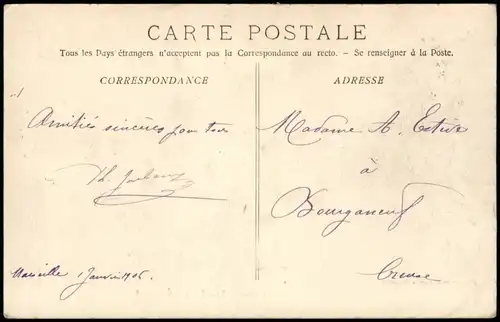 CARTE POSTALE
Tous les Pays étrangers n'acceptent pas la Correspondance au recto. - Se renseigner à la Poste.
CORRESPONDANCE
ADRESSE
Amitiés sincères pour tous
Madame A. Estive
à
Bourganeuf
Creuse
Marseille 1 Janvier 1906